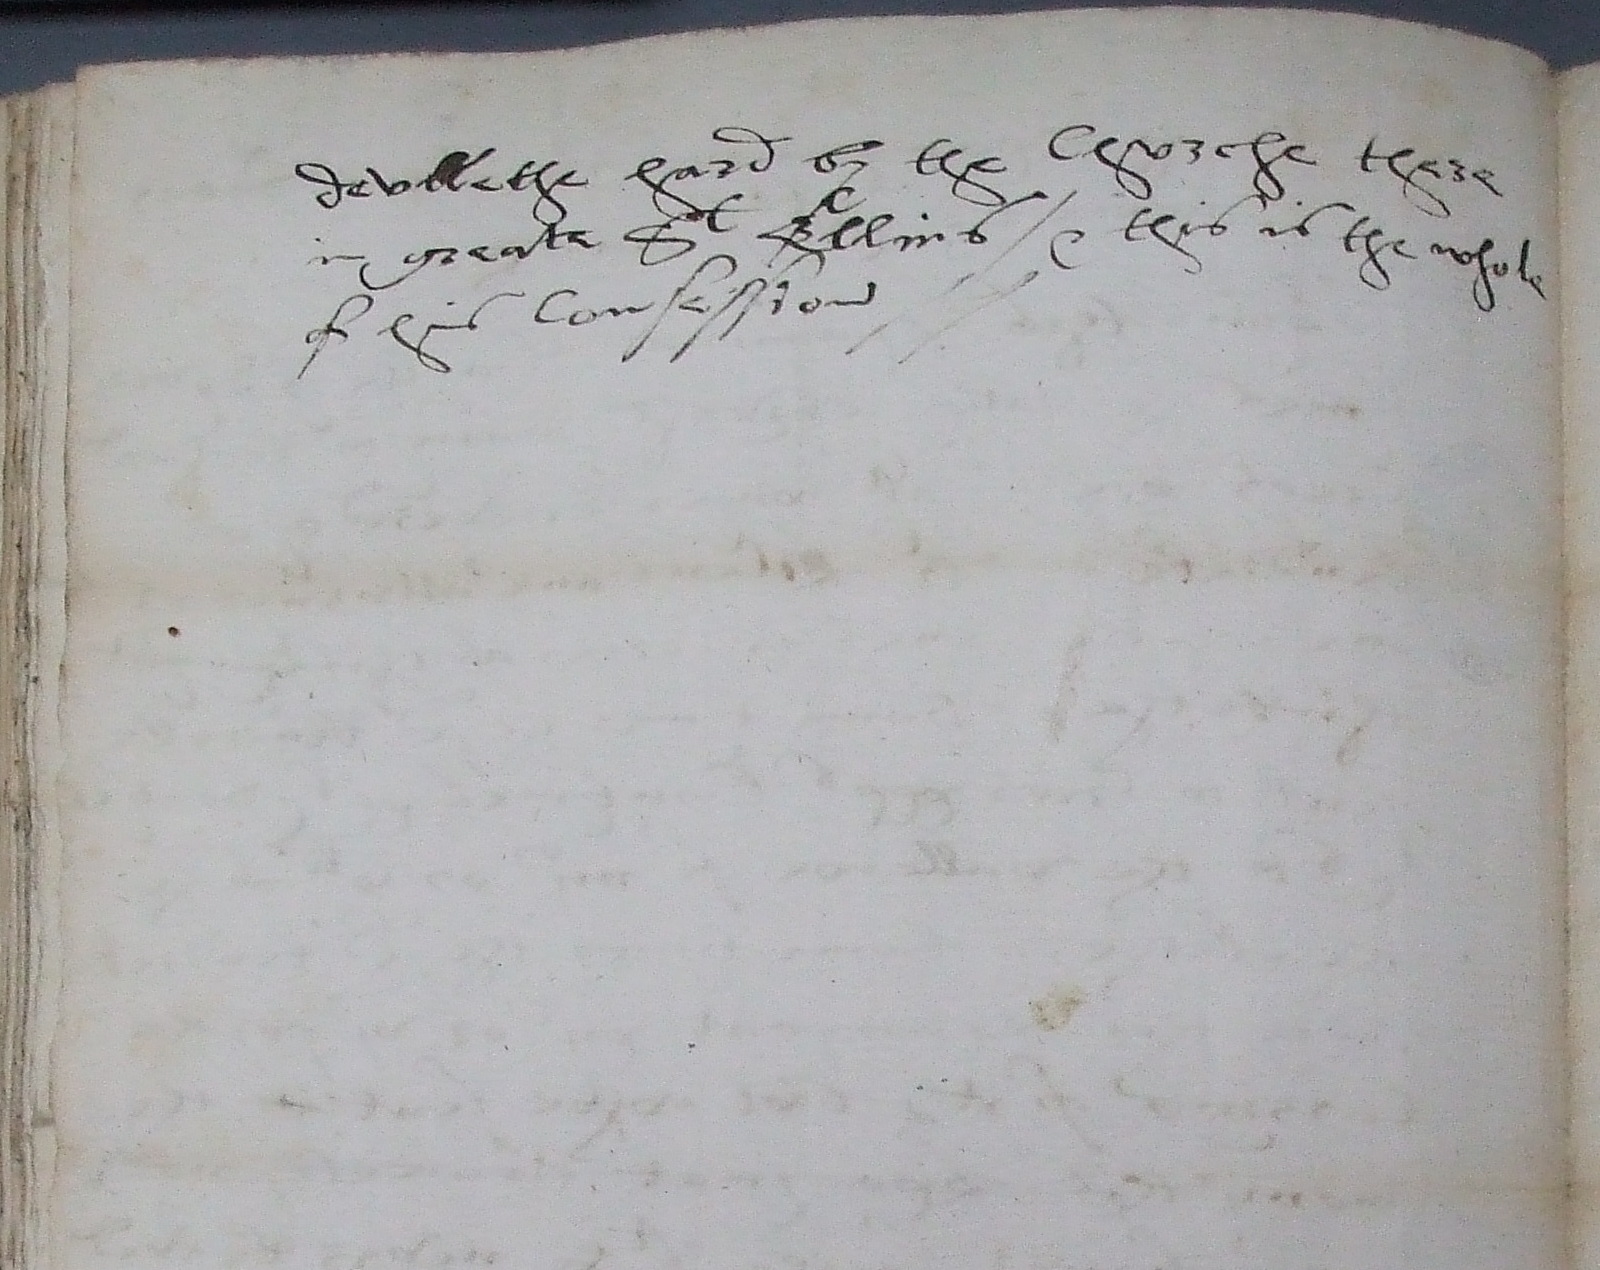 dwellethe hard by the Churche there
in greate St Ellins / & this is the whole
of his Confession //